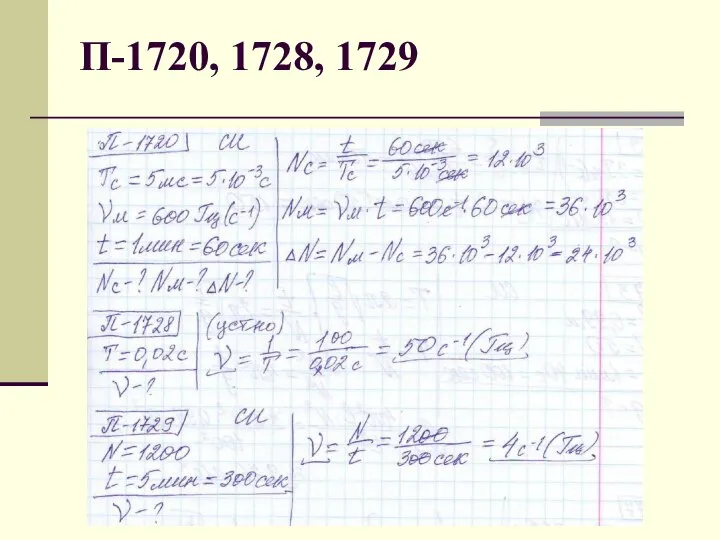 П-1720, 1728, 1729
П-1720 СИ
Tс = 5мс = 5·10⁻³с
νм = 600 Гц(с⁻¹)
t = 1мин = 60сек
Nс-? Nм-? ΔN-?
Nс = t/Tс = 60сек/5·10⁻³сек = 12·10³
Nм = νм·t = 600с⁻¹·60сек = 36·10³
ΔN = Nм - Nс = 36·10³ - 12·10³ = 24·10³
П-1728 (устно)
T = 0,02с
ν-?
ν = 1/T = 100/0,02с = 50с⁻¹(Гц)
П-1729 СИ
N = 1200
t = 5мин = 300сек
ν-?
ν = N/t = 1200/300сек = 4с⁻¹(Гц)